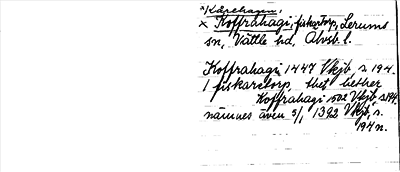 ×Kåpehagen:
× Koffrahagi, fiskartorp, Lerums
sn, Vättle hd, Älvsb. l.
Koffrahagi 1447 Vkjb s 194.
1 fiskaretorp thet hether
Koffrahagi 1502 Vkjb s 194.
nämnes även 5/1 1392 Vkjb, s.
194 n.